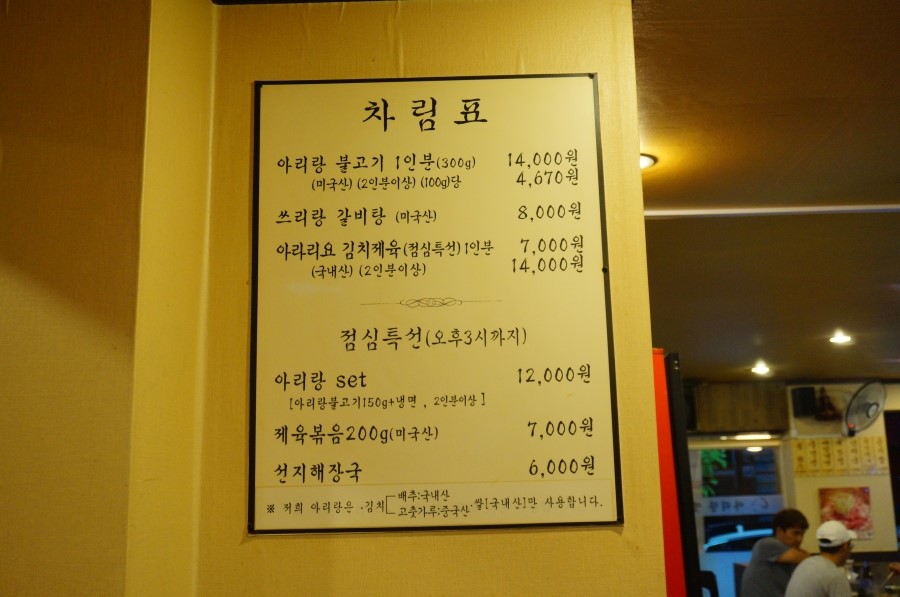 차림표
아리랑 불고기 1인분(300g) 14,000원
(미국산) (2인분이상) (100g)당 4,670원
쓰리랑 갈비탕 (미국산) 8,000원
아라리요 김치제육(점심특선) 1인분 7,000원
(국내산) (2인분이상) 14,000원
점심특선(오후3시까지)
아리랑 set 12,000원
[아리랑불고기150g+냉면 , 2인분이상]
제육볶음200g(미국산) 7,000원
선지해장국 6,000원
※ 저희 아리랑은 .김치 배추:국내산
고춧가루:중국산 .쌀[국내산]만 사용합니다.